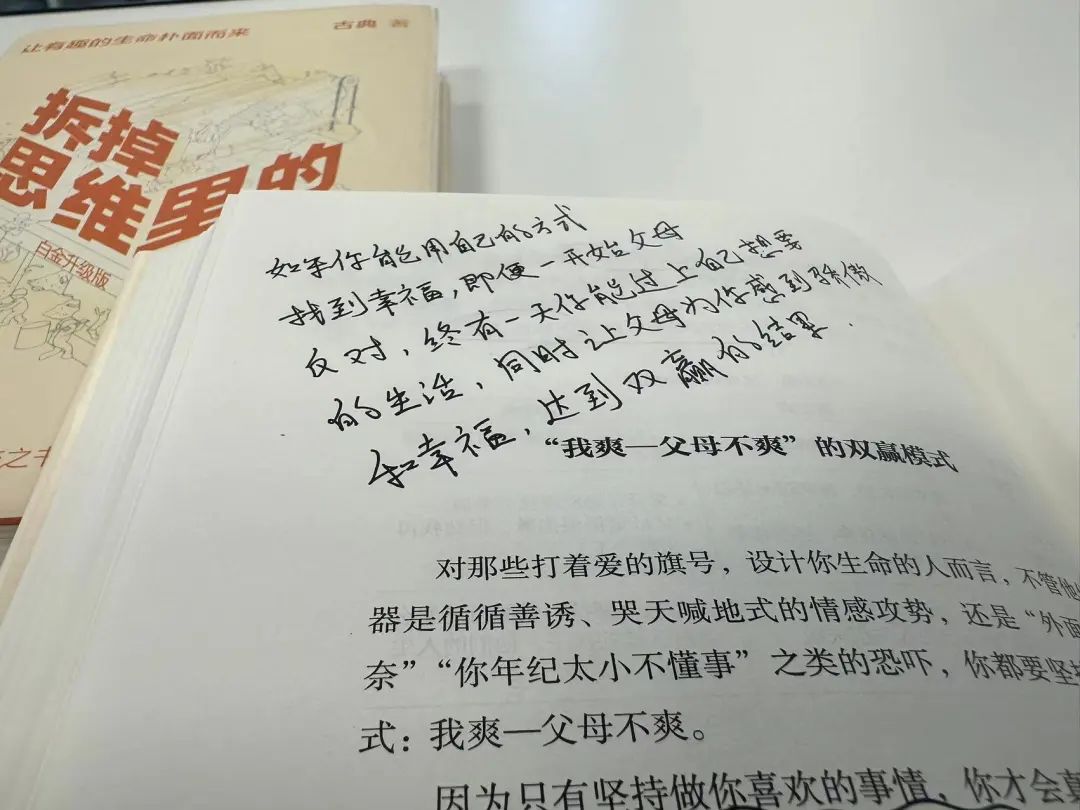 让有趣的生命扑面而来
古典 著
拆掉
思维里的
白金升级版
之书
如果你能用自己的方式
找到幸福，即便一开始父母
反对，终有一天你能过上自己想要
的生活，同时让父母为你感到骄傲
和幸福，达到双赢的结果．
“我爽—父母不爽”的双赢模式
对那些打着爱的旗号，设计你生命的人而言，不管他
器是循循善诱、哭天喊地式的情感攻势，还是“外面
奈”“你年纪太小不懂事”之类的恐吓，你都要坚
式：我爽—父母不爽。
因为只有坚持做你喜欢的事情，你才会真